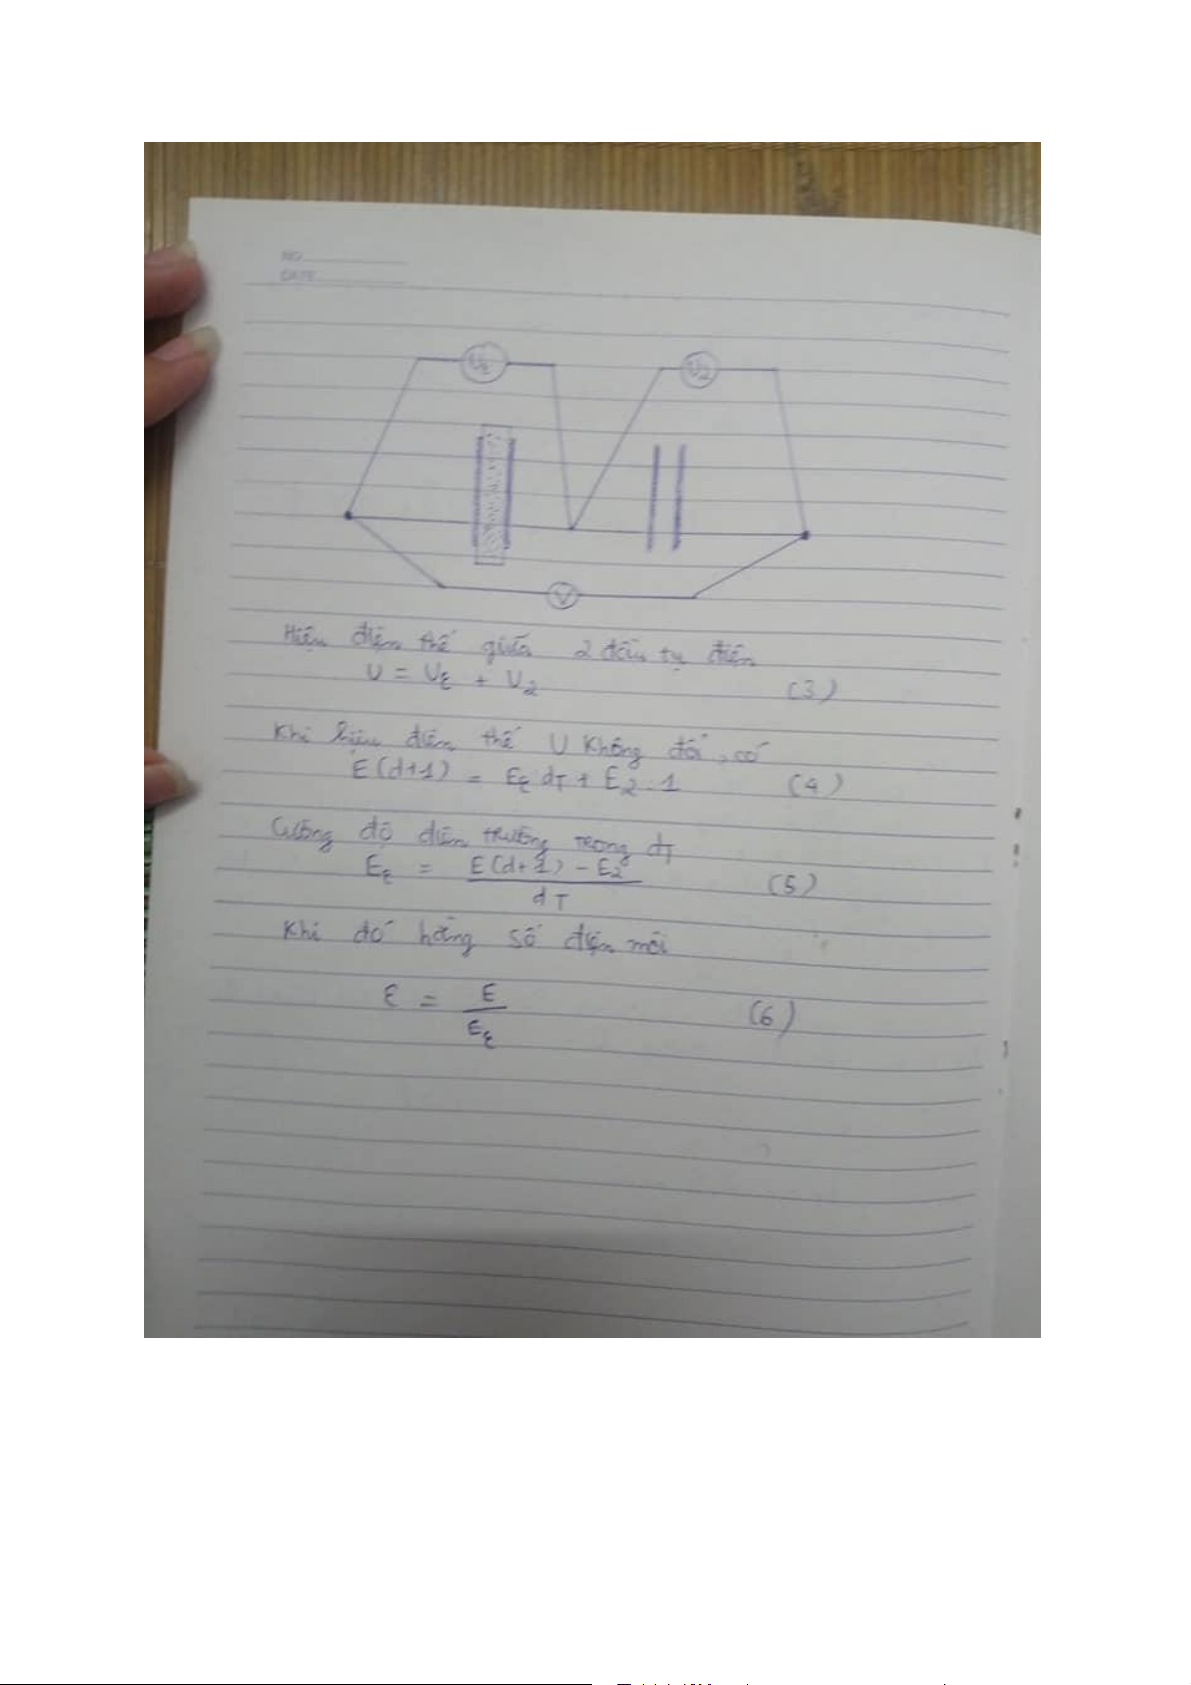 NO
DATE
Uε
U2
V
Hiệu điện thế giữa 2 đầu tụ điện
U = Uε + U2 (3)
Khi hiệu điện thế U không đổi, có
E(d+1) = Eε dT + E2 . 1 (4)
Cường độ điện trường trong dT
Eε = E(d+1) - E2 (5)
dT
Khi đó hằng số điện môi
ε = E (6)
Eε